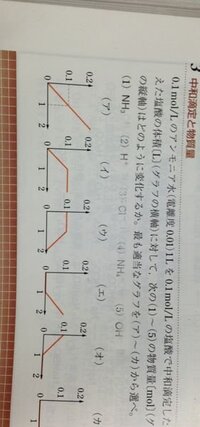 3 中和滴定と物質量
0.1mol/Lのアンモニア水(電離度0.01)1Lを0.1mol/Lの塩酸で中和滴定した
えた塩酸の体積(L)(グラフの横軸)に対して，次の(1)～(5)の物質量(mol)(グ
の縦軸)はどのように変化するか。最も適当なグラフを(ア)～(カ)から選べ。
(1) NH₃ (2) H⁺ (3) Cl⁻ (4) NH₄ (5) OH
(ア) (イ) (ウ) (エ) (オ) (カ
0.2 0.2 0.2 0.2 0.2
0.1 0.1 0.1 0.1 0.1
1 2 1 2 1 2 1 2 1 2